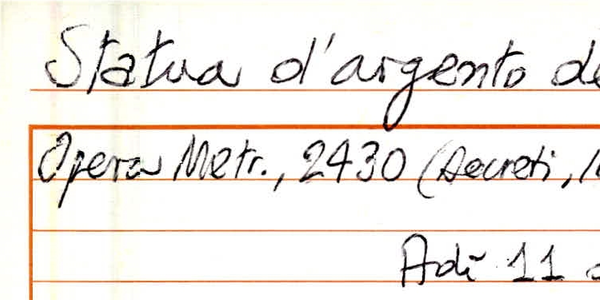 Statua d'argento de
Opera Metr., 2430 (Decreti, 1
Adì 11